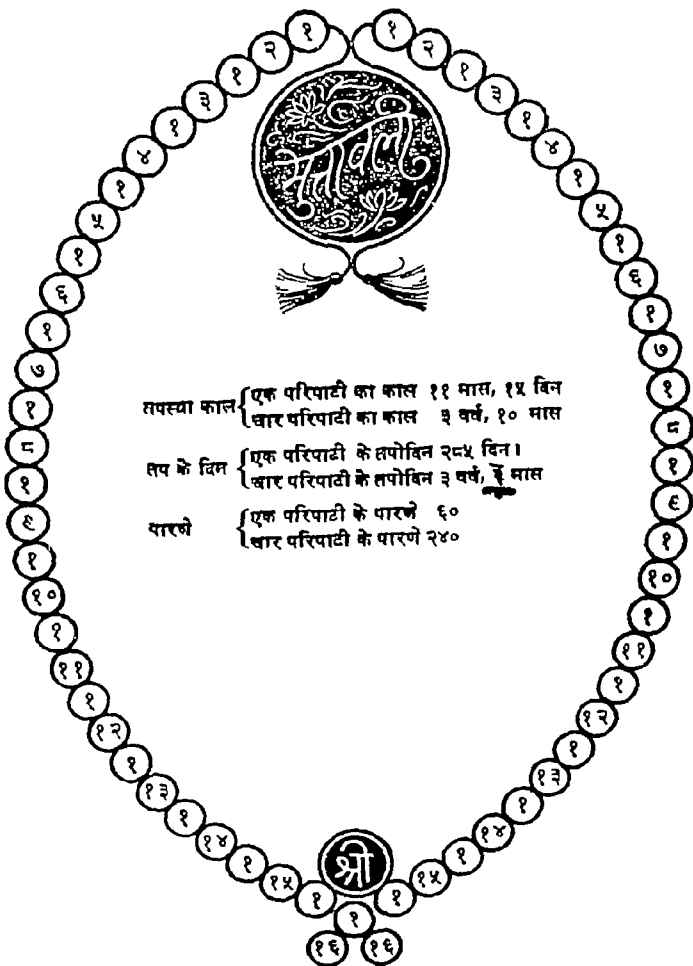 १ २ १ ३ १ ४ १ ५ १ ६ १ ७ १ ८ १ ९ १ १० १ ११ १ १२ १ १३ १ १४ १ १५ १
१ २ १ ३ १ ४ १ ५ १ ६ १ ७ १ ८ १ ९ १ १० १ ११ १ १२ १ १३ १ १४ १ १५ १
मुक्तावली
तपस्या काल { एक परिपाटी का काल ११ मास, १५ दिन
चार परिपाटी का काल ३ वर्ष, १० मास
तप के दिन { एक परिपाटी के तपोदिन २८५ दिन।
चार परिपाटी के तपोदिन ३ वर्ष, मास
पारणे { एक परिपाटी के पारणे ६०
चार परिपाटी के पारणे २४०
श्री
१
१६ १६